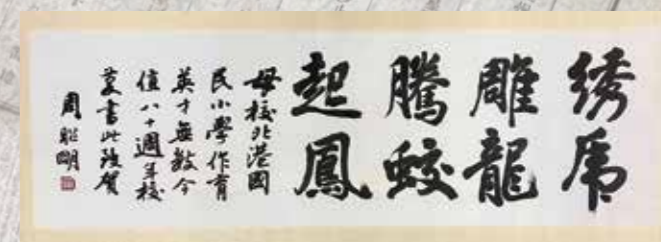 绣虎
雕龍
騰蛟
起鳳
母校北港國
民小學作育
英才無數今
值八十週年校
慶書此致賀
周聪明